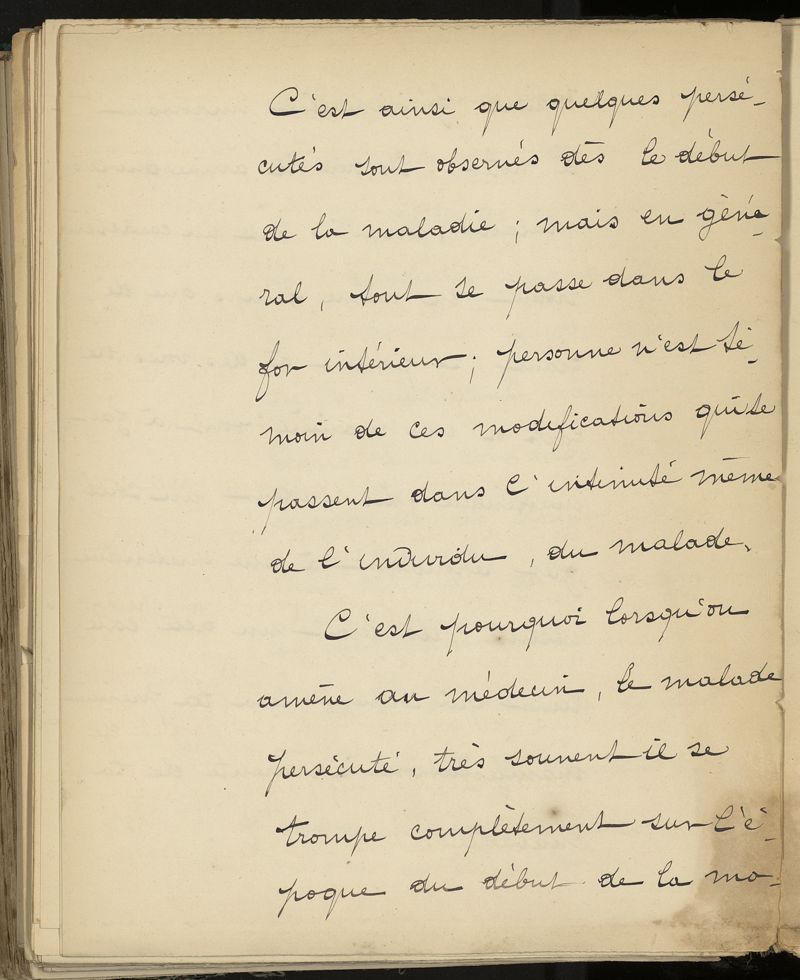 C'est ainsi que quelques persé-
cutés sont observés dès le début
de la maladie ; mais en géné-
ral, tout se passe dans le
for intérieur ; personne n'est té-
moin de ces modifications qui se
passent dans l'intimité même
de l'individu, du malade.
C'est pourquoi lorsqu'on
amène au médecin, le malade
persécuté, très souvent il se
trompe complètement sur l'é-
poque du début de la ma-